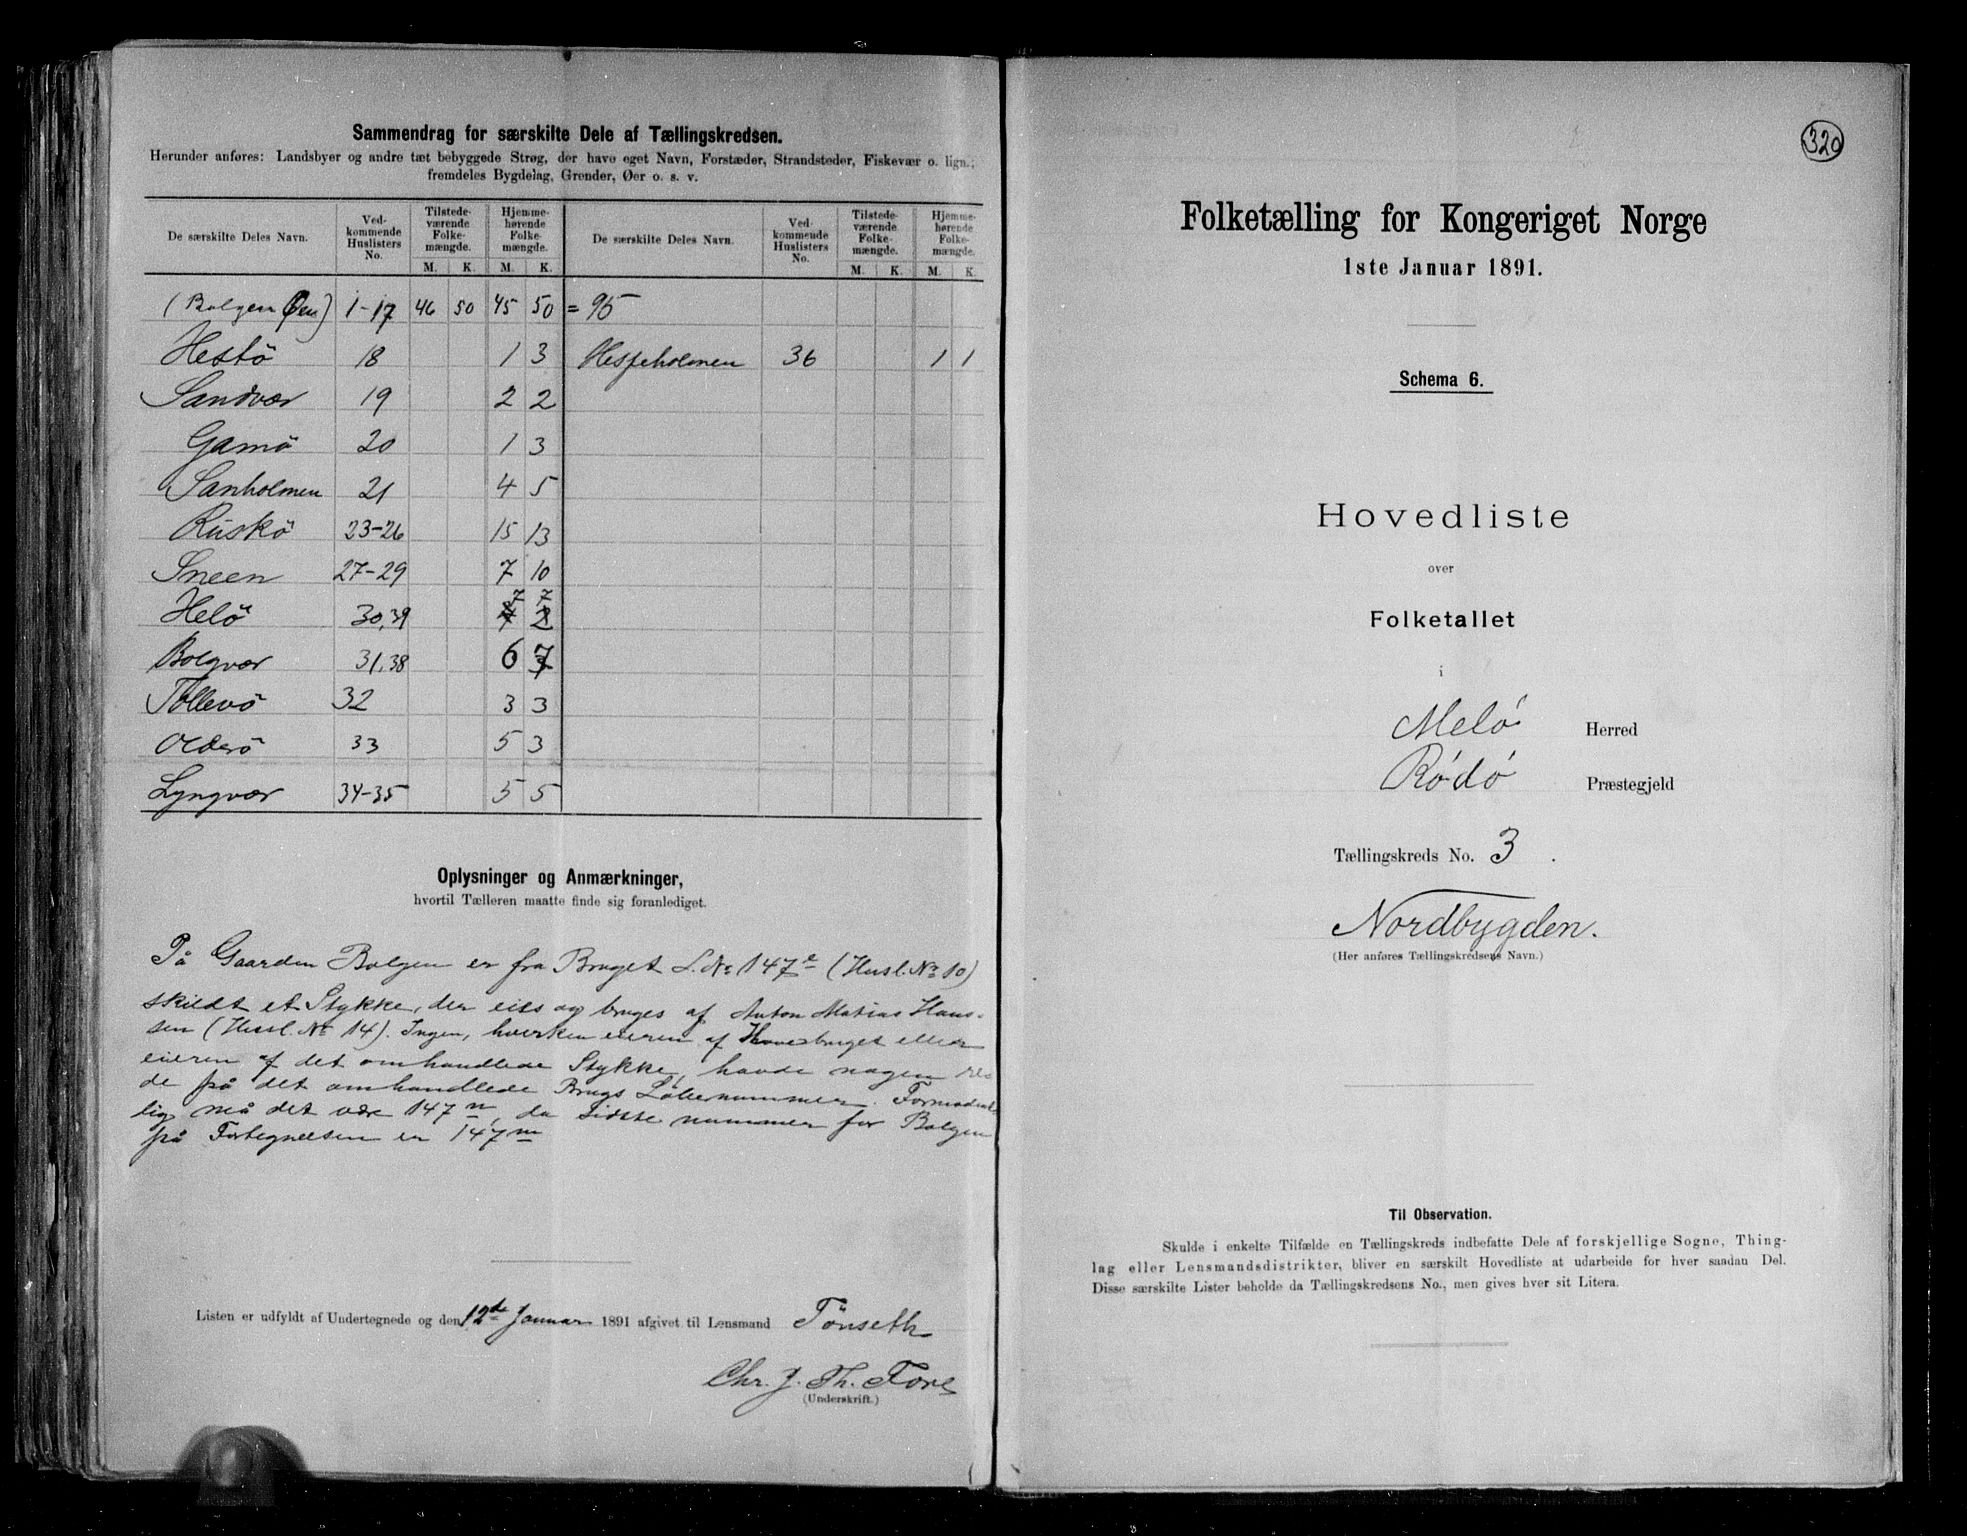 Sammendrag for særskilte Dele af Tællingskredsen.
Herunder anføres: Landsbyer og andre tæt bebyggede Strøg, der have eget Navn, Forstæder, Strandsteder, Fiskevær o. lign.;
fremdeles Bygdelag, Grender, Øer o. s. v.
De særskilte Deles Navn. Ved-kommende Huslisters No. Tilstede-værende Folke-mængde. M. K. Hjemme-hørende Folke-mængde. M. K. De særskilte Deles Navn. Ved-kommende Huslisters No. Tilstede-værende Folke-mængde. M. K. Hjemme-hørende Folke-mængde. M. K.
(Bolgen Øen) 1-17 46 50 45 50 = 95
Hestö 18 1 3 Hespeholmen 36 1 1
Sandvær 19 2 2
Gamö 20 1 3
Sanholmen 21 4 5
Ruskö 23-26 15 13
Sneen 27-29 7 10
Helö 30,39 7 7
Bolgvær 31,38 6 7
Tollevö 32 3 3
Olderö 33 5 3
Lyngvær 34-35 5 5
Oplysninger og Anmærkninger,
hvortil Tælleren maatte finde sig foranlediget.
På Gaarden Bolgen er fra Bruget L.No 147e (Husl. No 10)
skildt et Stykke, der eies og bruges af Anton Matias Hans-
sen (Husl. No 14). Ingen, hverken eieren af Hovedbruget eller
eieren af det omhandlede Stykke, havde nogen re-
de på det omhandlede Brugs Löbenummer. Formodent-
lig må det være 147n, da sidste nummer for Bolgen
på Fortegnelsen er 147m
Listen er udfyldt af Undertegnede og den 12de Januar 1891 afgivet til Lensmand Tönseth
Chr. J. Th. Fore
(Underskrift.)
320
Folketælling for Kongeriget Norge
1ste Januar 1891.
Schema 6.
Hovedliste
over
Folketallet
i
Melö Herred
Rödö Præstegjeld
Tællingskreds No. 3.
Nordbygden.
(Her anføres Tællingskredsens Navn.)
Til Observation.
Skulde i enkelte Tilfælde en Tællingskreds indbefatte Dele af forskjellige Sogne, Thing-
lag eller Lensmandsdistrikter, bliver en særskilt Hovedliste at udarbeide for hver saadan Del.
Disse særskilte Lister beholde da Tællingskredsens No., men gives hver sit Litera.